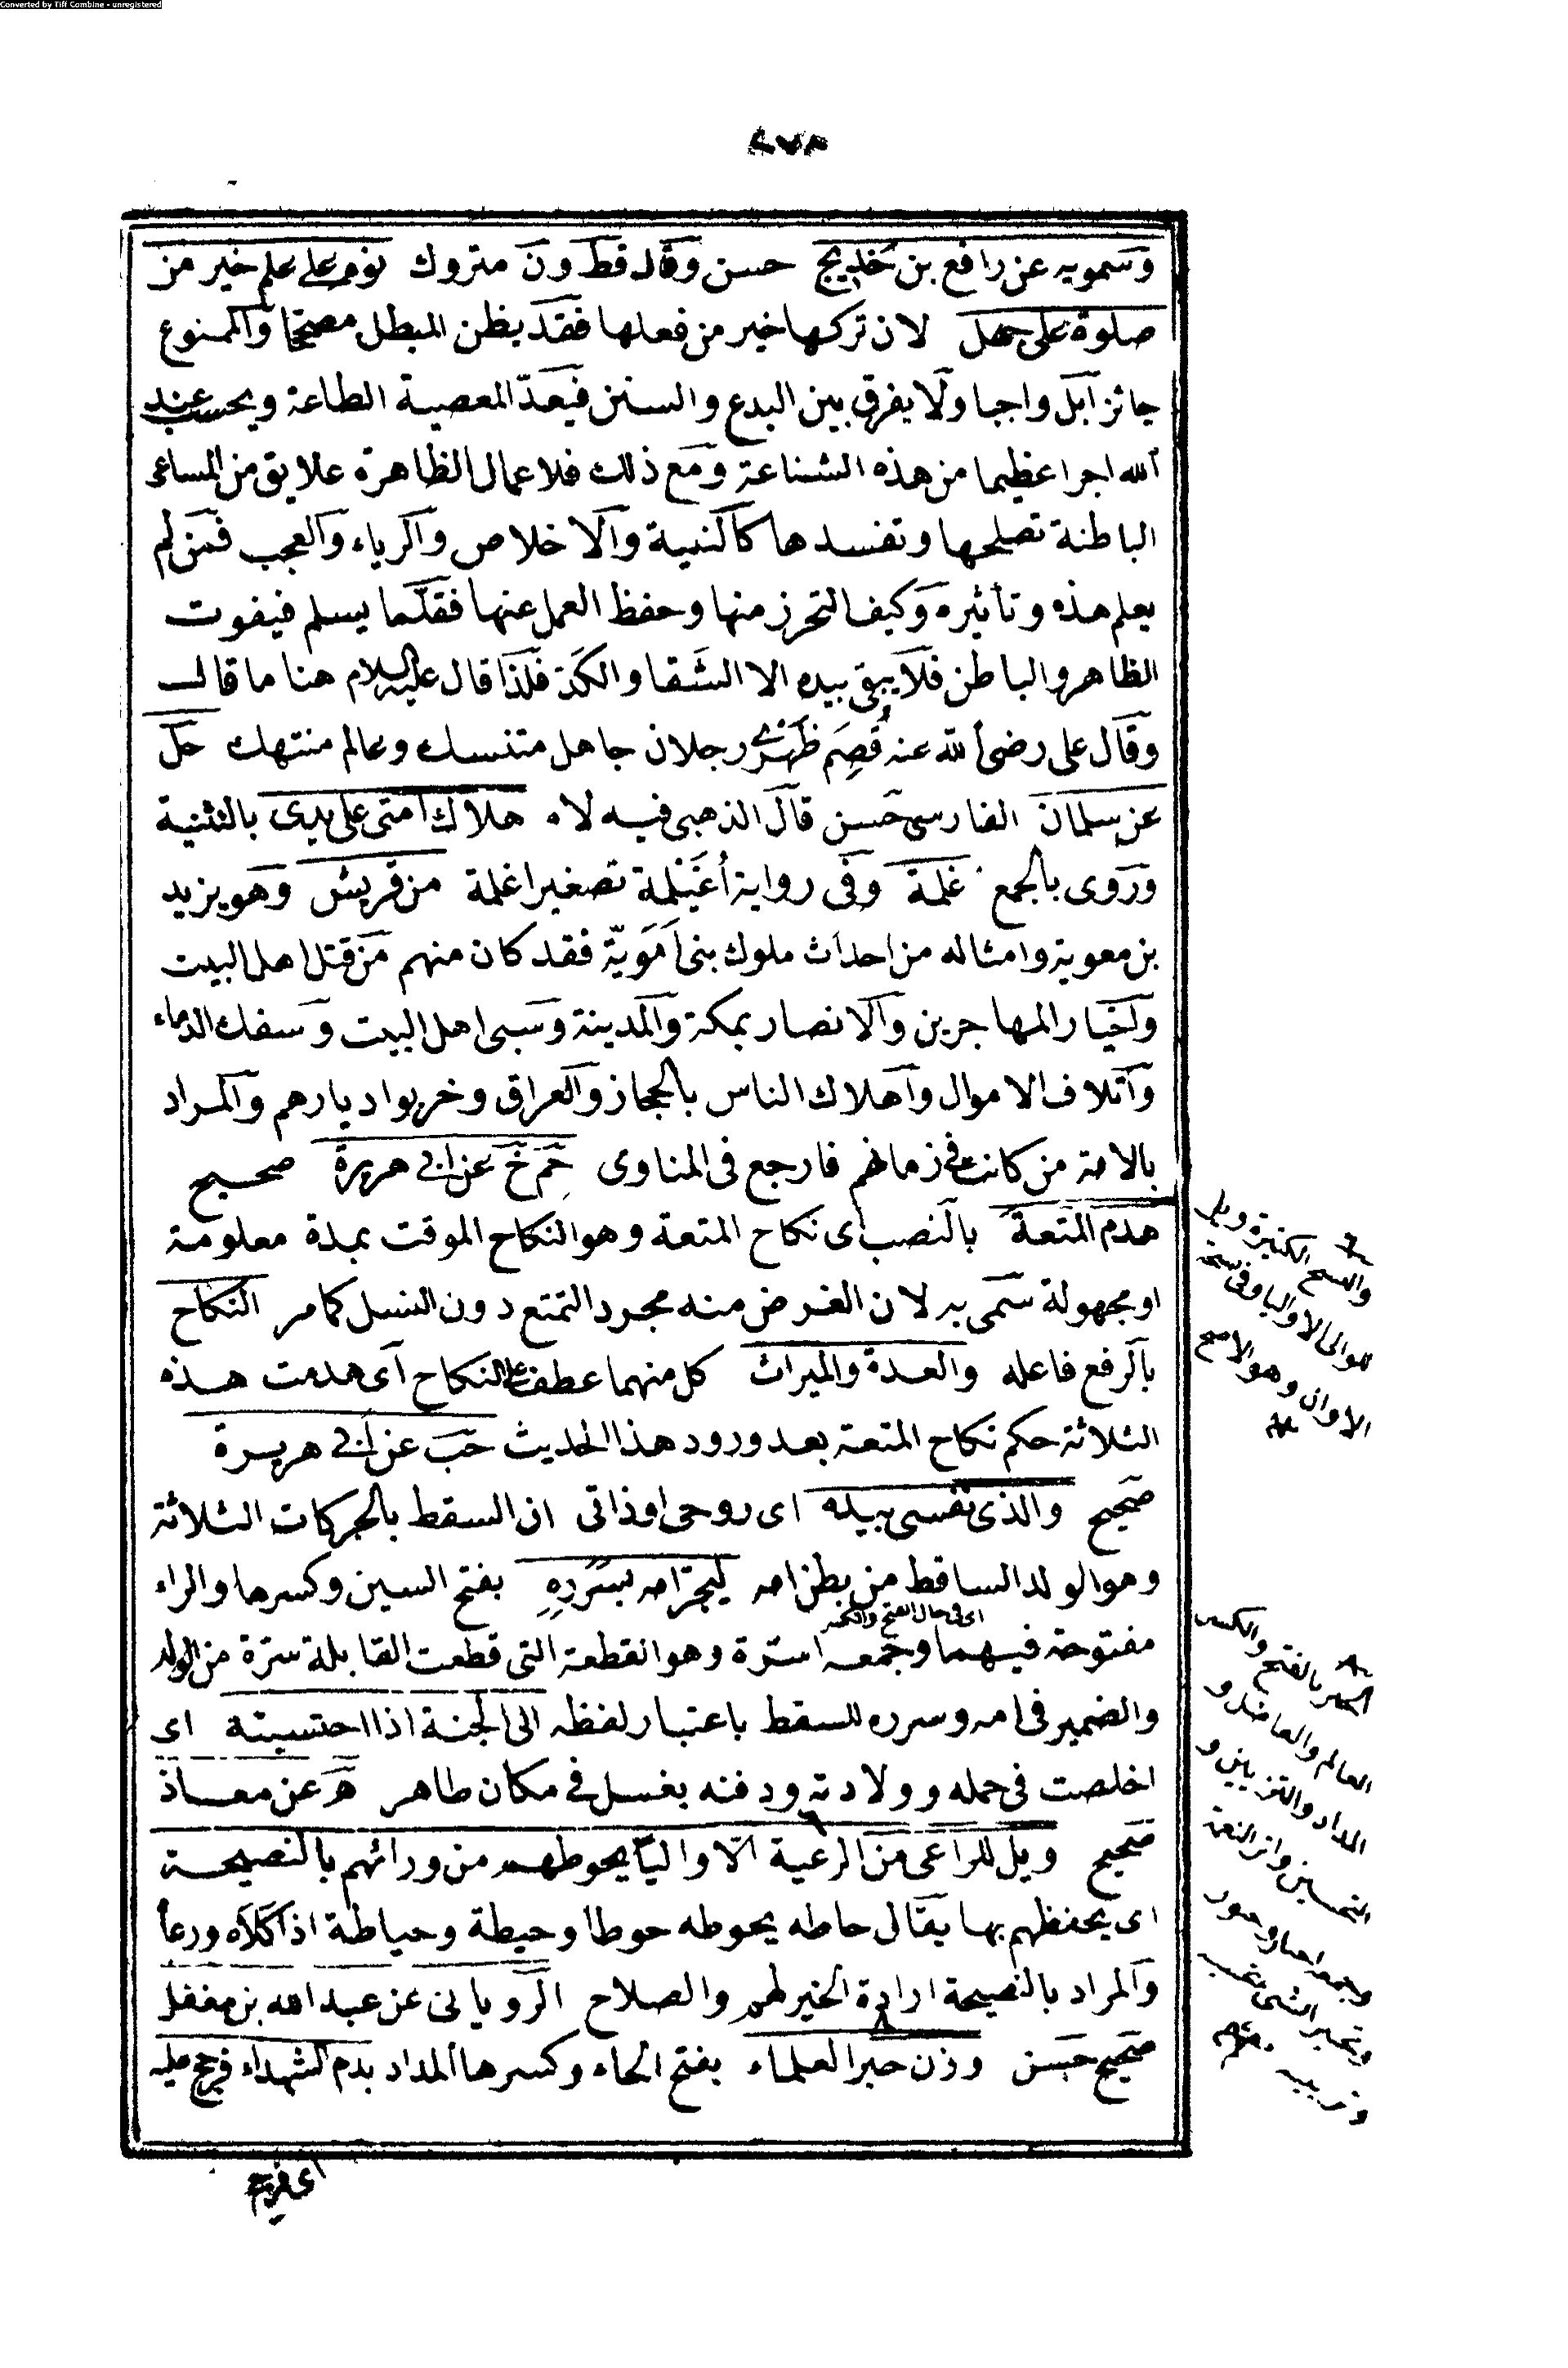 Converted by Tiff Combine - unregistered
وسمويه عن رافع بن خديج حسن وقال قط ون متروك نوم على علم خير من
صلوة على جهل لان تركها خير من فعلها فقد يظن المبطل مصححا والممنوع
جائزا بل واجبا ولا يفرق بين البدع والسنن فيعدّ المعصية الطاعة ويحسب عند
الله اجرا عظيما من هذه الشناعة ومع ذلك فلاعمال الظاهرة علايق من المساعى
الباطنة تصلحها وتفسدها كالنية والاخلاص والرياء والعجب فمن لم
يعلم هذه وتأثيره وكيف التحرز منها وحفظ العمل عنها فقلّما يسلم فيفوت
الظاهر والباطن فلا يبقى بيده الا الشقا والكد فلذا قال عليه السلام هنا ما قال
وقال على رضى الله عنه قُصِم ظهرى رجلان جاهل متنسك وعالم منتهك حل
عن سلمان الفارسى حسن قال الذهبى فيه لاء هلاك امتى على يدى بالتثنية
وروى بالجمع غلمة وفى رواية أغيلمة تصغير اغلمة من قريش وهو يزيد
بن معوية وامثاله من احداث ملوك بنى اموية فقد كان منهم من قتل اهل البيت
واخيار المهاجرين والانصار بمكة والمدينة وسبى اهل البيت وسفك الدماء
واتلاف الاموال واهلاك الناس بالحجاز والعراق وخربوا ديارهم والمراد
بالامة من كانت فى زمانهم فارجع فى المناوى حم خ عن ابى هريرة صحيح
هدم المتعة بالنصب اى نكاح المتعة وهو النكاح الموقت بمدة معلومة
او مجهولة سمى به لان الغرض منه مجرد التمتع دون النسل كما مر النكاح
بالرفع فاعله والعدة والميراث كل منهما عطف على النكاح اى هدمت هذه
الثلاثة حكم نكاح المتعة بعد ورود هذا الحديث حب عن ابى هريرة
صحيح والذى نفسى بيده اى روحى او ذاتى ان السقط بالحركات الثلاثة
وهو الولد الساقط من بطن امه ليجرّ امه بسَرَرِهِ بفتح السين وكسرها والراء
اى فى حال الفتح والكسر
مفتوحة فيهما وجمعه اسرّة وهو القطعة التى قطعت القابلة سرّة من الولد
والضمير فى امه وسرره للسقط باعتبار لفظه الى الجنة اذا احتسبته اى
اخلصت فى حمله وولادته ودفنه بغسل فى مكان طاهر ه عن معاذ
صحيح ويل للراعى من الرعية الا واليا يحوطهم من ورائهم بالنصيحة
اى يحفظهم بها يقال حاطه يحوطه حوطا وحيطة وحياطة اذا كلأه ورعا
والمراد بالنصيحة ارادة الخير لهم والصلاح الرويانى عن عبد الله بن مغفل
صحيح حسن وزن حبر العلماء بفتح الحاء وكسرها المداد بدم الشهداء فرجح عليه
اى فرجح
والنسخ الكثيرة ويل
هوالى الا واليا وفى نسخة
الا وان وهو الاصح
الحبر بالفتح والكسر
العالم والفاضل و
المداد والتزيين و
التحسين واثر النعمة